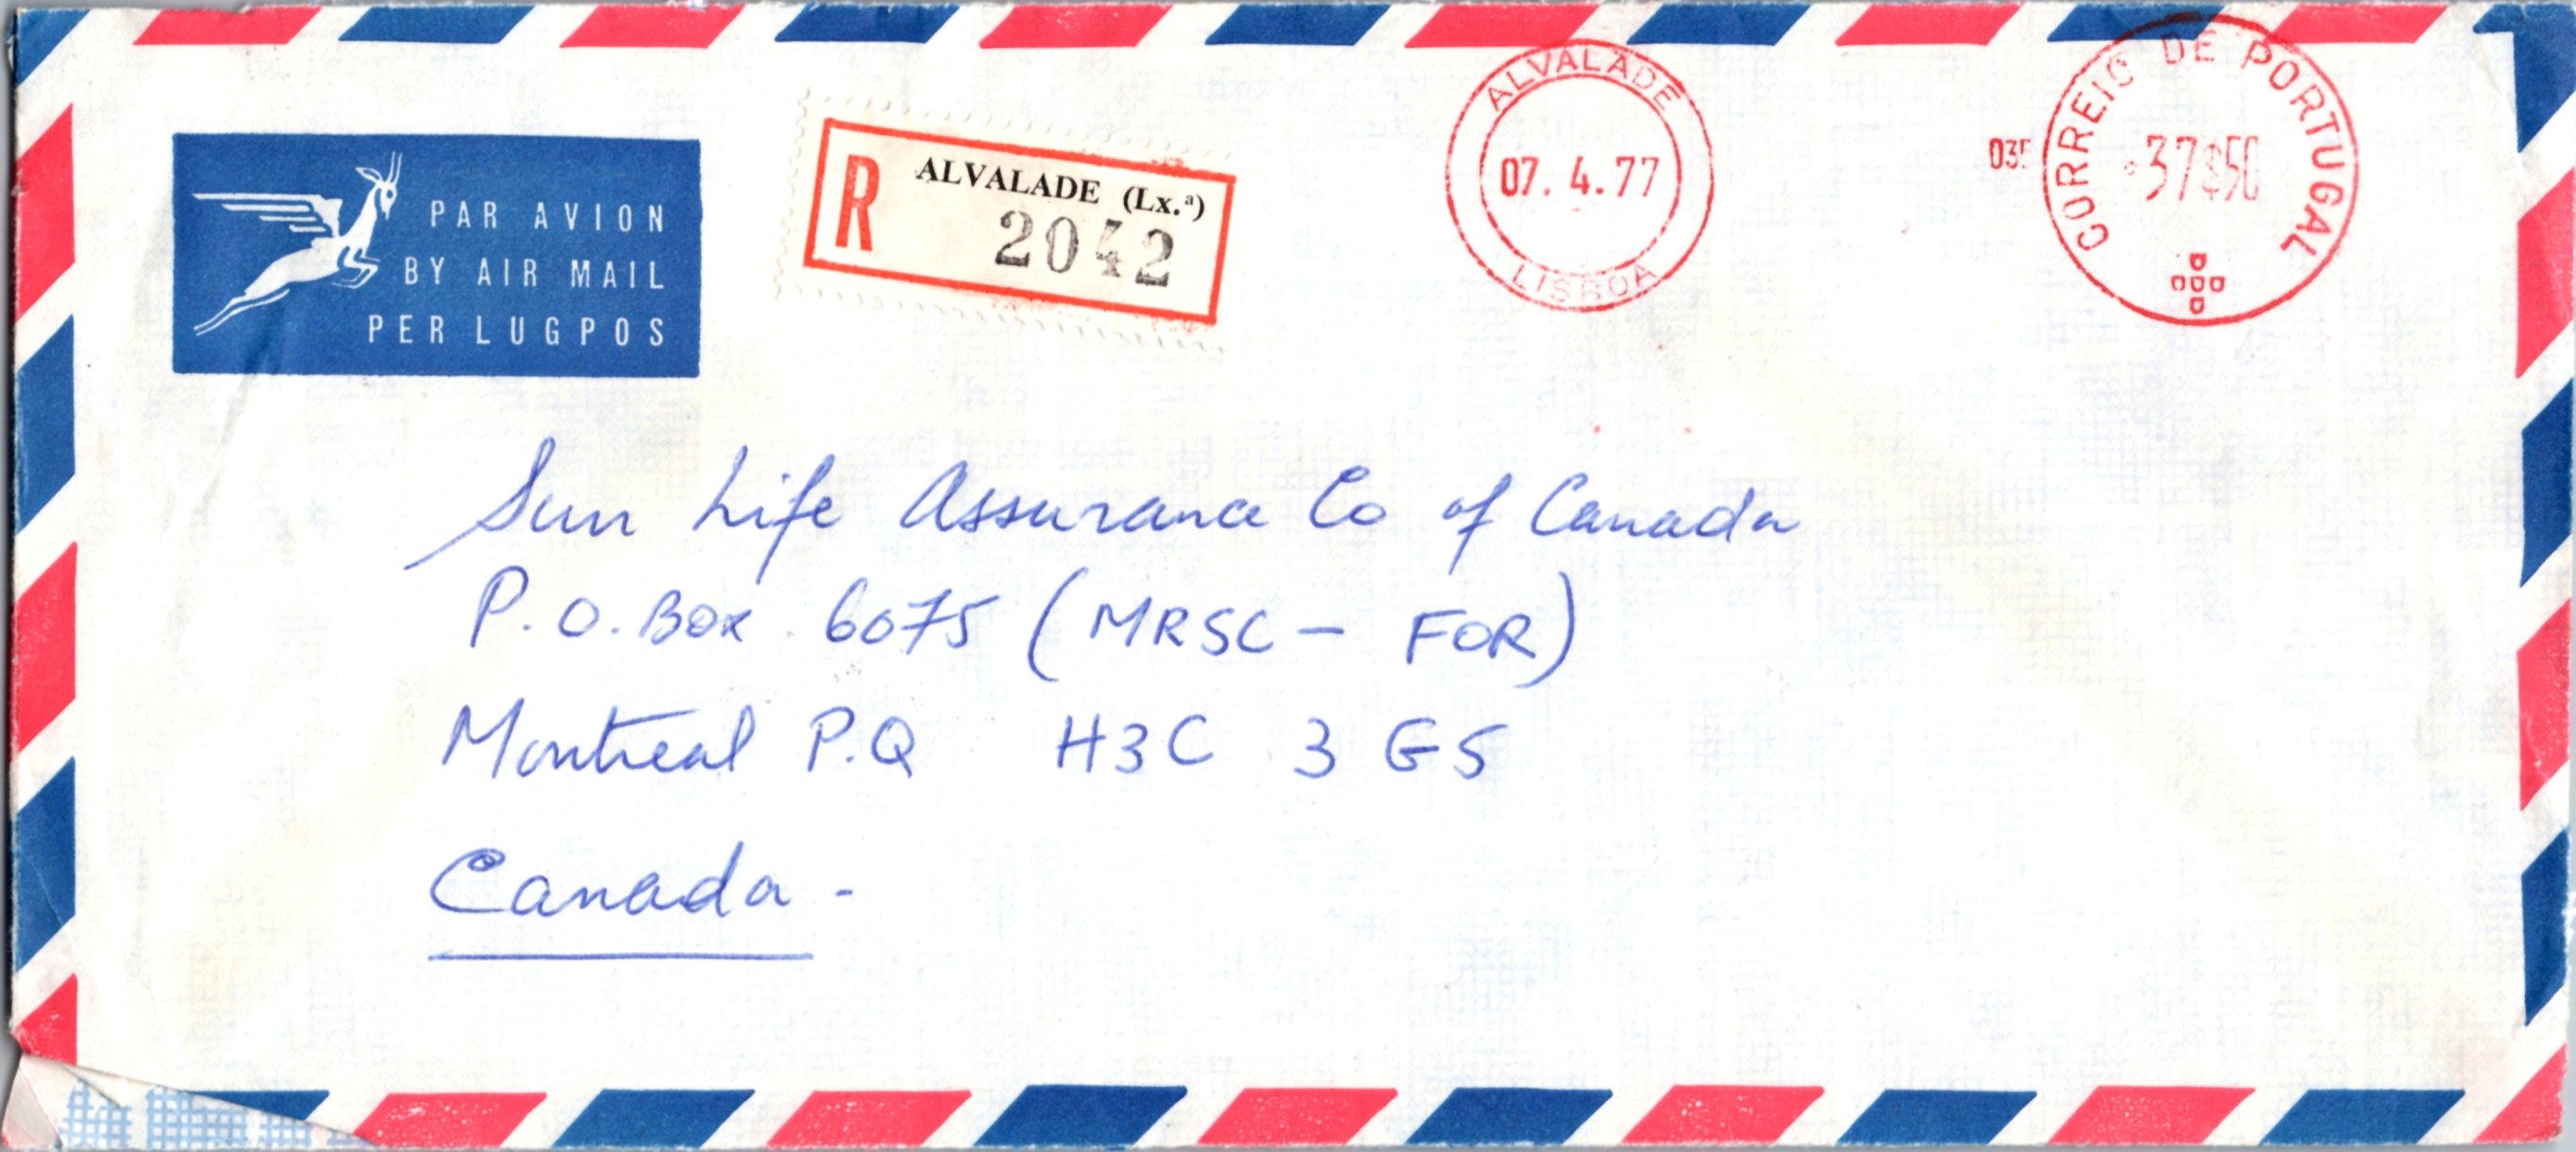 PAR AVION
BY AIR MAIL
PER LUGPOS
R
ALVALADE (Lx.ª)
2042
ALVALADE
07. 4.77
LISBOA
CORREIO DE PORTUGAL
37$50
Sun Life Assurance Co of Canada
P.O. Box 6075 (MRSC - FOR)
Montreal P.Q H3C 3 G5
Canada -